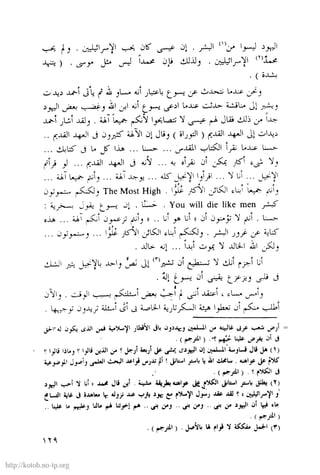 اليهود ليسوا من (١) البشر . إن عيسى كان يحب الإسرائيليين . ولم يحب
محمد (٢) الإسرائيليين . ولذلك فإن محمداً ليس مثل يسوع . ( ينتهد
بشدة ) .
ونحن عندما نتحدث عن يسوع باعتبار أنه رسول الله مثلما يأتي أحد
ويشير إلى مناقشة حدثت عندما ادعى يسوع أنه ابن الله ويغضب بعض اليهود
جداً من ذلك فقال لهم عيسى لا تغضبوا لأنكم جميعاً آلهة . ولقد أشار أحمد
ديدات إلى العهد القديم ( التوراة ) وقال إن الآلهة كثيرون في العهد القديم ..
حسناً ... عندما نقرأ الكتاب المقدس ... حسناً ... هذا كل ما في كتابك ...
ولا شيء أكثر يمكن أن أقرأه ... أنه في العهد القديم ... لم أقرأ
الإنجيل ... لا أنا ... اقرأوا الإنجيل كله ... يوجد آلهة ... وأنتم جميعاً آلهة ...
وأنتم جميعاً أبناء الكائن الأكثر علواً : The Most High ولكنكم ستموتون
مثل البشر You will die like men . حسناً . إن يسوع يقول بحرية :
حسناً . وأنتم لا تؤمنون أن « أنا هو أنا » .. وأنتم تزعمون أنكم آلهة ... هذه
كناية عن غرور البشر . ولكنكم أبناء الكائن الأكثر علواً ... وستموتون ...
ولكن الله خالد لا يموت أبداً ... إنه خالد .
أنا أزعم أنك لا تستطيع أن تشير (٣) إلى نص واحد بالإنجيل يثير الشك
في قلب وعزيز ويقيني أن يسوع إله .
وأمس وحسناً ، أعتقد أنني لم أجب على بعض أسئلتكم بسبب الوقت . والآن
أطلب منكم أن تعطوا هيئة السكرتارية الخاصة بي أي أسئلة تريدون توجيهها .
= أرض شعب عربي غالبيته من المسلمين ويهددون باقي الأقطار الإسلامية فمن الذي يكون له الحق
في أن يفرض علينا حبهم ؟! ( المترجم ) .
(١) هل قال قساوسة المسلمين إن اليهودي يمشي على أربع أم أربعة أرجل ؟ من الذين قالوا ؟ وماذا قالوا ؟
كلام على عواهنه . سامحك الله يا باستر استانلي ! أين تدرس قواعد البحث العلمي وأصول الموضوعية
في الكلام ؟ ( المترجم ) .
(٢) يطلق باستر استانلي الكلام على عواهنه بطريقة مشينة . أين قال محمد « أنا لا أحب اليهود
أو الإسرائيليين » ؟ لقد عقد رسول الإسلام مع يهود يثرب عند نزوله بها معاهدة في غاية التسامح
جاء فيها أن اليهود من بني .. ومن بني .. ومن بني .. هم إخوتنا لهم مالنا وعليهم ما علينا ..
( المترجم ) .
(٣) الجمل مكانه لا فوقه هذا بالأصل . ( المترجم ) .
١٢٩
http://kotob.no-ip.org